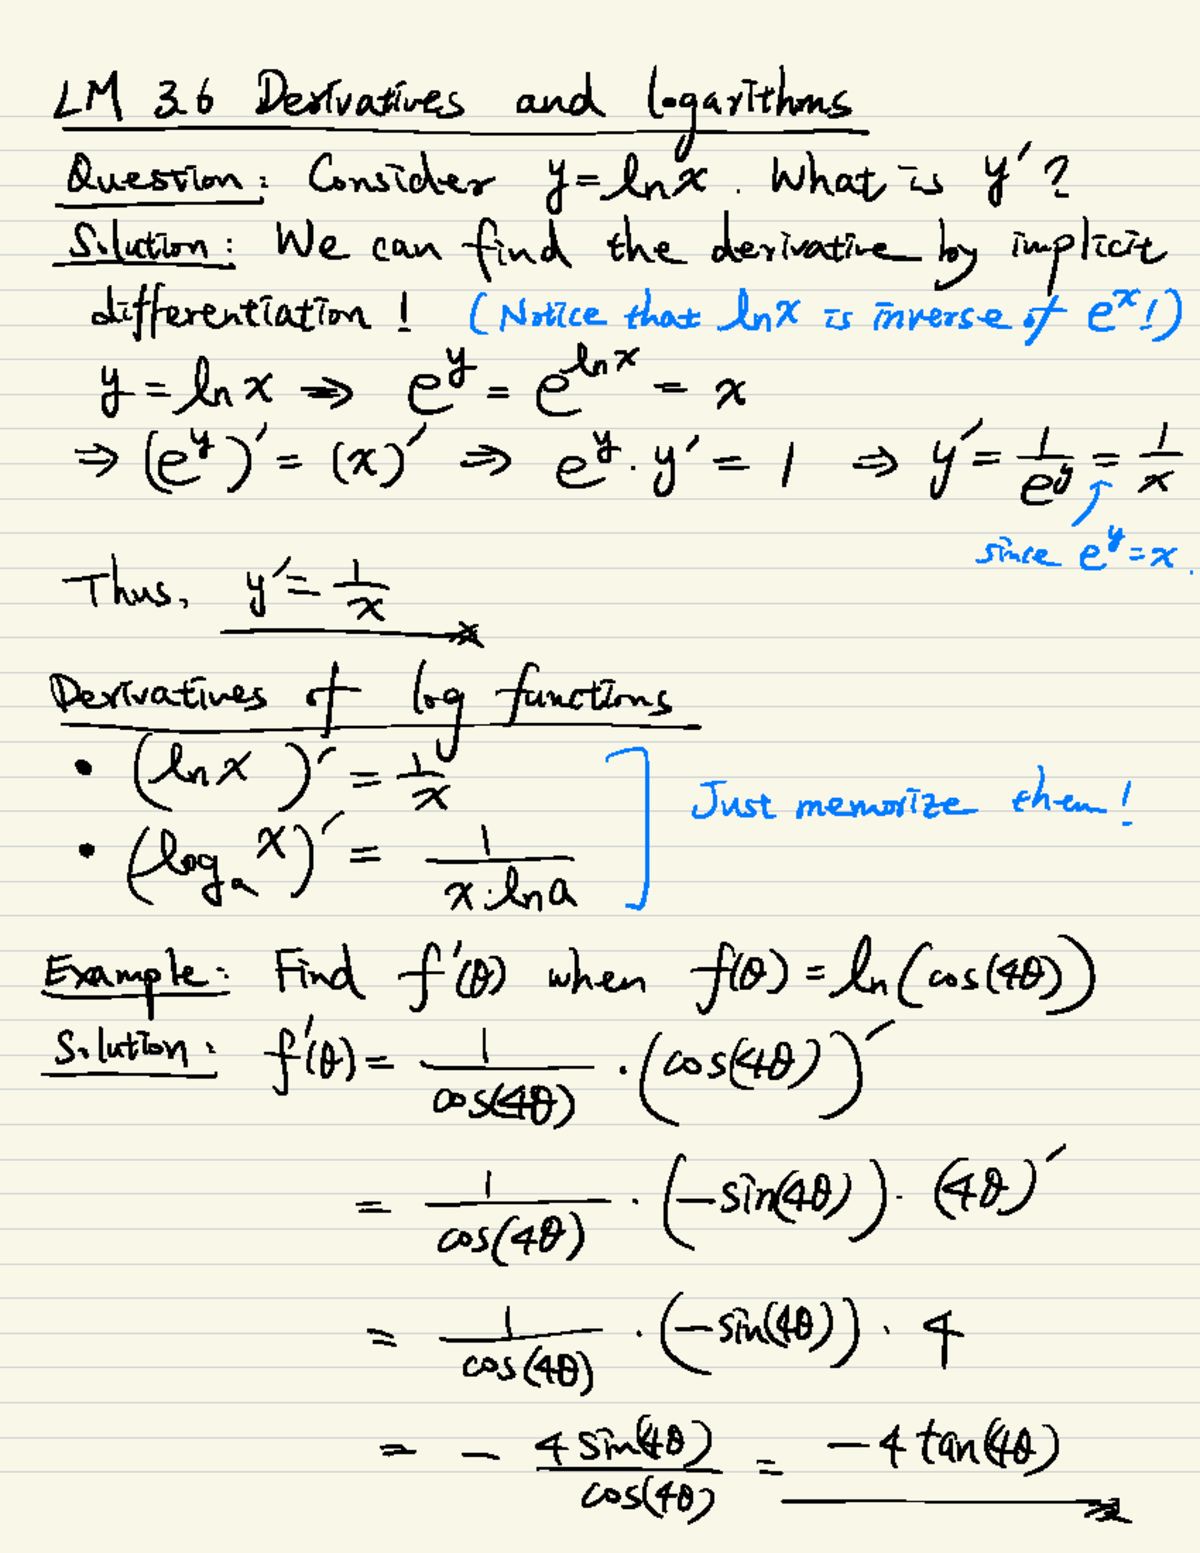 LM 3.6 Derivatives and logarithms
Question: Consider y = ln x. What is y′?
Solution: We can find the derivative by implicit
differentiation! (Notice that ln x is inverse of e^x!)
y = ln x ⇒ e^y = e^{ln x} = x
⇒ (e^y)′ = (x)′ ⇒ e^y · y′ = 1 ⇒ y′ = 1/e^y = 1/x
since e^y = x.
Thus, y′ = 1/x
Derivatives of log functions
• (ln x)′ = 1/x
Just memorize them!
• (log_a x)′ = 1/(x · ln a)
Example: Find f′(θ) when f(θ) = ln(cos(4θ))
Solution: f′(θ) = 1/cos(4θ) · (cos(4θ))′
= 1/cos(4θ) · (−sin(4θ)) · (4θ)′
= 1/cos(4θ) · (−sin(4θ)) · 4
= − 4 sin(4θ)/cos(4θ) = −4 tan(4θ)